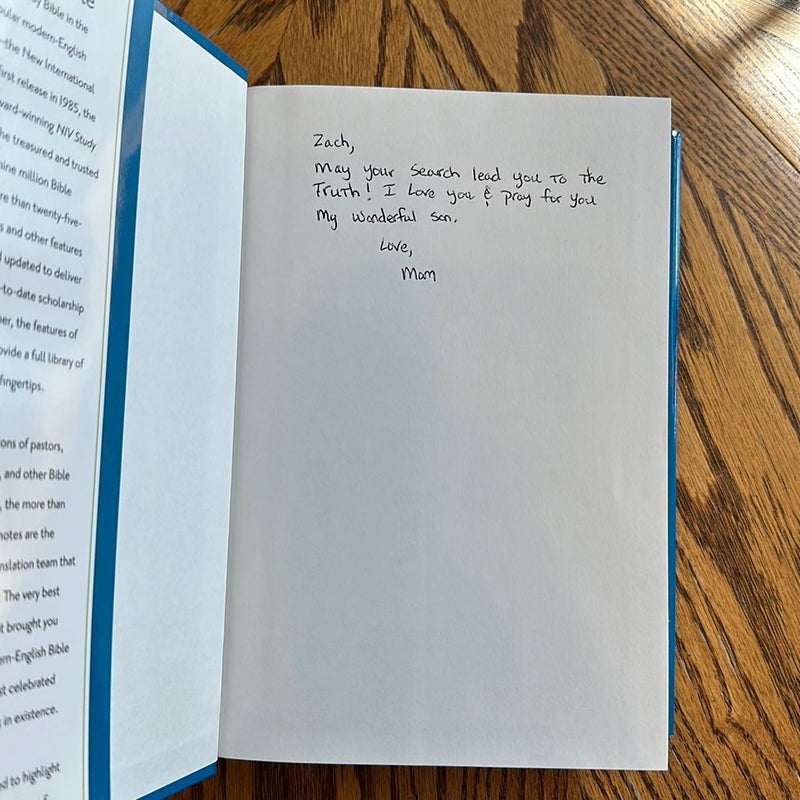 y Bible in the
pular modern-English
the New International
first release in 1985, the
ward-winning NIV Study
he treasured and trusted
nine million Bible
re than twenty-five-
s and other features
updated to deliver
-to-date scholarship
her, the features of
ovide a full library of
fingertips.
ons of pastors,
, and other Bible
, the more than
notes are the
nslation team that
The very best
t brought you
rn-English Bible
st celebrated
in existence.
d to highlight
Zach,
May your search lead you to the
Truth! I Love you & pray for you
My wonderful son.
Love,
Mom